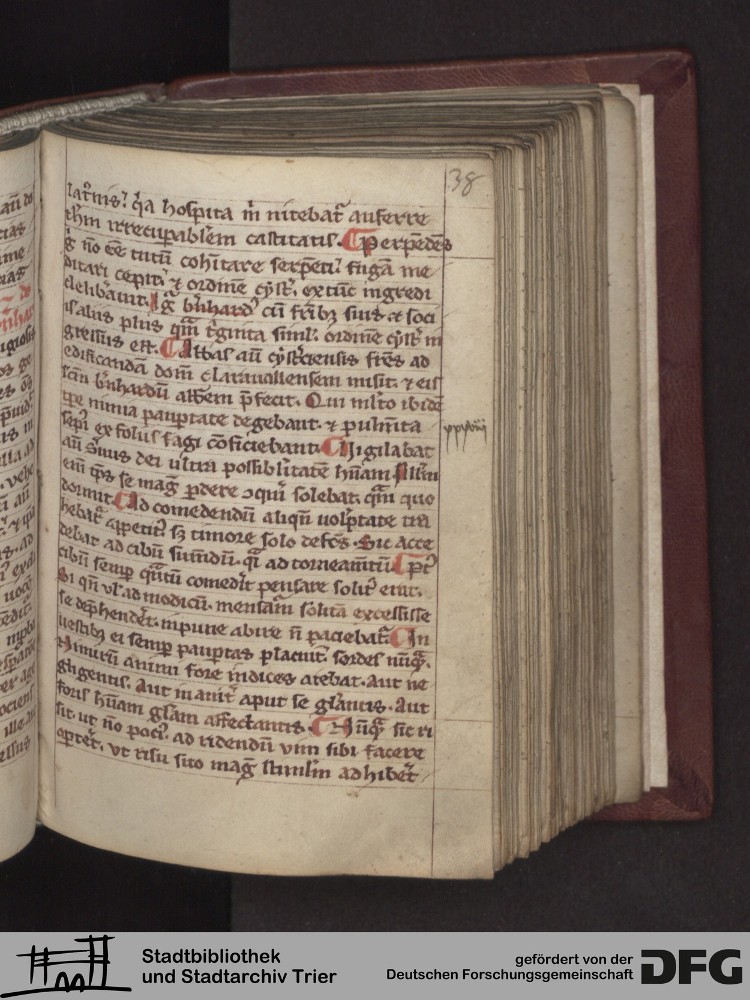 38
lat͛nis? q̃a hospita m̄ nitebat᷑ auferre
th̄m irrecupabilem castitatis. ¶ Perpēdēs
g̊ nō eē tutū cohītare serpēti? fugā me
ditari cepit? ⁊ ordinē cyst̄. extūc ingredi
delib̄auit. Ig̊ b̄nhard᷒ cū fr̄ib᷒ suis ⁊ soci
is alus plus qm̄ t̊ginta siml᷑. ordinē cyst̄ in
gressus est. ¶ Abbas aū cyst̄ciensis fr̄es ad
edificandā domū clarauallensem misit. ⁊ eis
scm̄ b̄nhardū abb̄em p̄fecit. Qui ml̄to ibidē
tp̄e nimia paup̄tate degebant. ⁊ pulm̄ta
sepi᷒ ex foliis fagi cōficiebant. ¶ Vigilabat
xxxviii
aū s̄uus dei ultra possibilitatē hūam. Nllm̄
em̄ tp̄s se mag᷑ p̄dere ꝯqui᷑ solebat. qm̄ quo
dormit. ¶ Ad comedendū aliqn̄ uolp̄tate tra
hebat᷑ appetit᷒? sz timore solo defcs̄. Sic acce
debat ad cibū sumēdū. q̄i ad tormentū. ¶ Pt᷒
cibū semp q̄ntū comedit pensare solit᷒ erat.
Si qn̄ ul᷑ ad modicū. mensurā solitā excessisse
se dep̄hendēt. inpune abire n̄ paciebat᷑. ¶ In
uestib᷒ ei semp paup̄tas placuit. sordes nūq̄.
Nimirū animi fore indices aiebat. Aut ne
gligentis. Aut inanit᷑ aput se gl̄antis. Aut
foris hūam gl̄am affectantis. ¶ Nūq̄ sic ri
sit. ut nō poci᷒. ad ridendū uim sibi facere
oportēt. ut risu suo mag᷑ stimlm̄ adhibēt
Stadtbibliothek
und Stadtarchiv Trier
gefördert von der
Deutschen Forschungsgemeinschaft
DFG